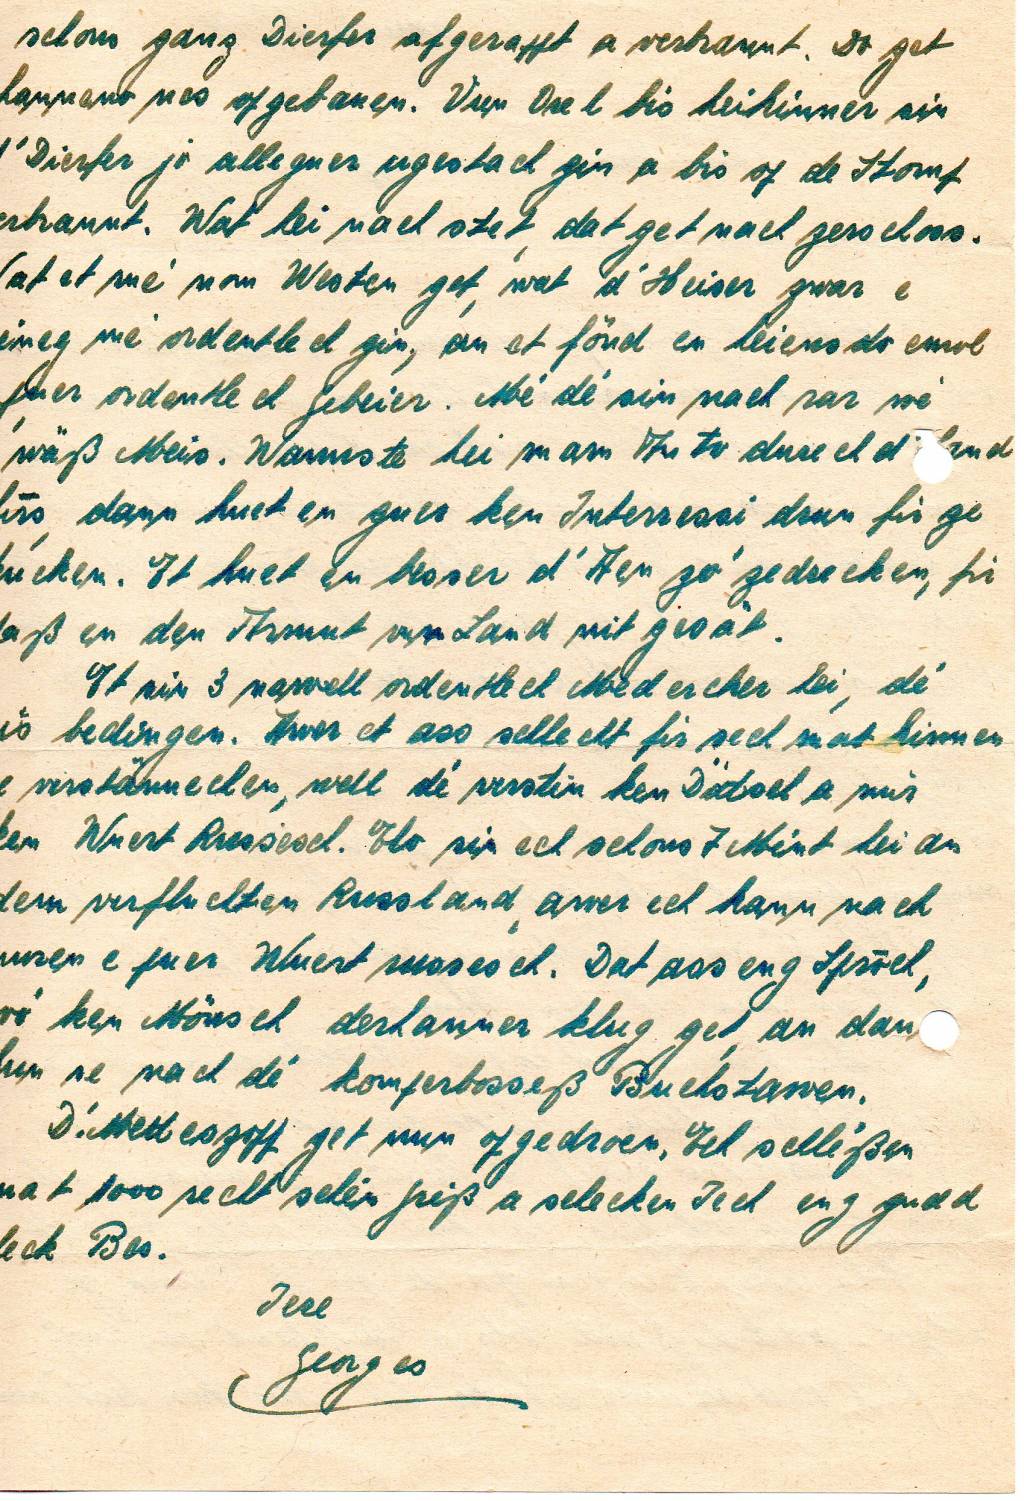 schons ganz Dierfer afgerafft a verbrannt. Do get
hannend nes opgebauen. Vum Orel bis heihinner sin
d'Dierfer jo alleguer ugestach gin a bis op de Stomp
erbrannt. Wat hei nach stet, dat get nach zerschoss.
Wat et mé nom Westen get, wat d'Heiser zwar e
eineg mé ordentlech gin, an et fönd en heiansdo emol
puer ordentlech Gebeier. Mé dé sin nach rar wé
wäß Meis. Wannste hei mam Auto durech d' Land
hirs, dann huet en guer ken Interressi drun fir ze
kucken. Et huet en besser d'Aen zó zedrecken, fir
daß en den Armut vum Land nit gesät.
Et sin 3 nawell ordentlech Médercher hei, dé
is bedingen. Awer et ass schlecht fir sech mat hinnen
e verstännechen, well dé verstin ken Dätsch a mir
ken Wuert Russesch. Elo sin ech schons 7 Mint hei an
dem verfluchten Russland, awer ech kann nach
nuren e puer Wuert russesch. Dat ass eng Sproch,
wó ken Mönsch derhanner klug get, an dan
hun se nach dé komferbosseß Buchstawen.
D'Metteszopp get nun opgedroen. Ech schléßen
mat 1000 recht schéin Griß a schecken Iech eng gudd
deck Bes.
Iere
Georges